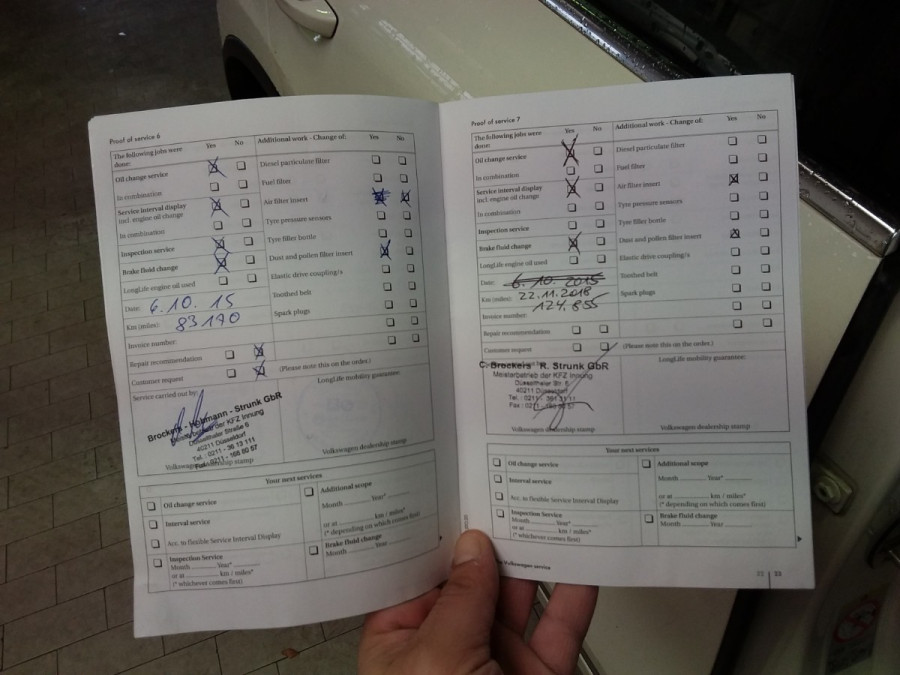 Proof of service 6
The following jobs were done: Yes No
Oil change service
In combination
Service interval display
incl. engine oil change
In combination
Inspection service
Brake fluid change
LongLife engine oil used
Date: 6.10.15
Km (miles): 83170
Invoice number:
Repair recommendation
Customer request
(Please note this on the order.)
Additional work - Change of: Yes No
Diesel particulate filter
Fuel filter
Air filter insert
Tyre pressure sensors
Tyre filler bottle
Dust and pollen filter insert
Elastic drive coupling/s
Toothed belt
Spark plugs
Service carried out by:
LongLife mobility guarantee:
Brockers - Hobmann - Strunk GbR
Meisterbetrieb der KFZ Innung
Düsselthaler Straße 6
40211 Düsseldorf
Tel.: 0211 - 36 13 111
Fax: 0211 - 168 80 57
Volkswagen dealership stamp
Volkswagen dealership stamp
Your next services
Oil change service
Interval service
Acc. to flexible Service Interval Display
Inspection Service
Month Year*
or at km / miles*
(* whichever comes first)
Additional scope
Month Year*
or at km / miles*
(* depending on which comes first)
Brake fluid change
Month Year
Proof of service 7
The following jobs were
done: Yes No
Oil change service
In combination
Service interval display
incl. engine oil change
In combination
Inspection service
Brake fluid change
LongLife engine oil used
Date: 6.10.2015
22.11.2018
Km (miles): 124.855
Invoice number:
Repair recommendation
Customer request
(Please note this on the order.)
Additional work - Change of: Yes No
Diesel particulate filter
Fuel filter
Air filter insert
Tyre pressure sensors
Tyre filler bottle
Dust and pollen filter insert
Elastic drive coupling/s
Toothed belt
Spark plugs
LongLife mobility guarantee:
Brockers R. Strunk GbR
Meisterbetrieb der KFZ Innung
Düsselthaler Str. 6
40211 Düsseldorf
Tel.: 0211 - 361 31 11
Fax: 0211 - 168 80 57
Volkswagen dealership stamp
Volkswagen dealership stamp
Your next services
Oil change service
Interval service
Acc. to flexible Service Interval Display
Inspection Service
Month Year*
or at km / miles*
(* whichever comes first)
Additional scope
Month Year*
or at km / miles*
(* depending on which comes first)
Brake fluid change
Month Year
Volkswagen service
22 | 23